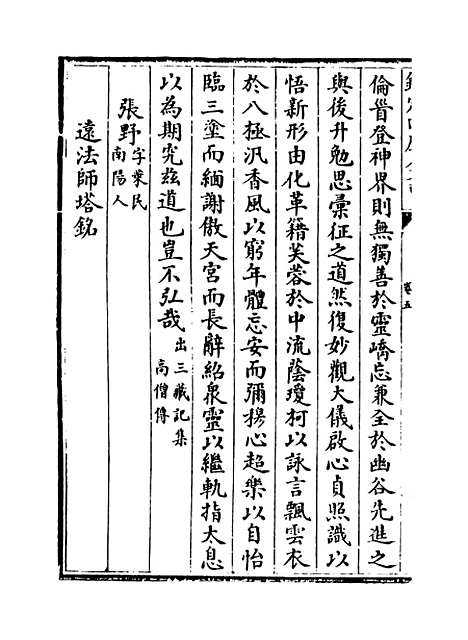 倫胥登神界則無獨善於靈嶠忘兼全於幽谷先進之
與後升勉思彚征之道然復妙觀大儀啟心貞照識以
悟新形由化革籍芙蓉於中流蔭瓊柯以詠言飄雲衣
於八極汎香風以窮年體忘安而彌揚心超樂以自怡
臨三塗而緬謝傲天宮而長辭紹衆靈以繼軌指太息
以為期究兹道也豈不弘哉
出三藏記集
高僧傳
張野
字萊民
南陽人
遠法師塔銘
卷五